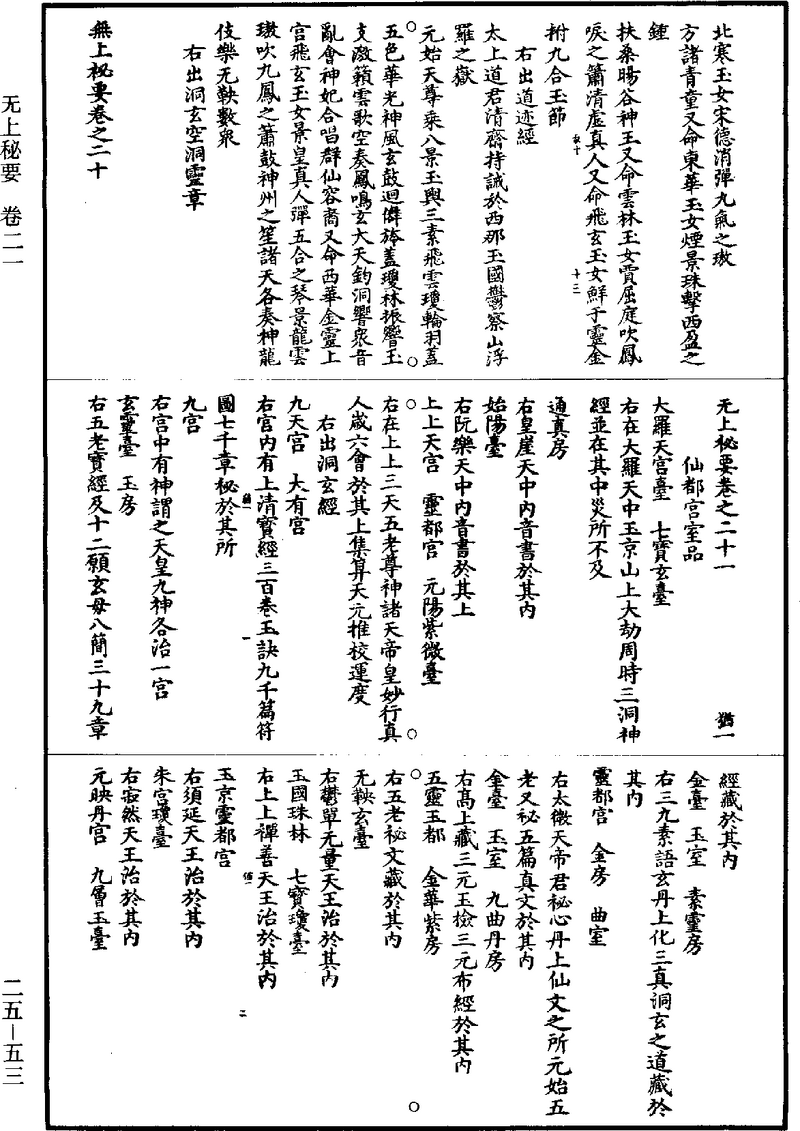 北寒玉女宋德消彈九氣之璈
方諸青童又命東華玉女煙景珠擊西盈之
鍾
扶桑暘谷神王又命雲林玉女賈屈庭吹鳳
唳之簫清虛真人又命飛玄玉女鮮于靈金
拊九合玉節
右出道迹經
太上道君清齋持誡於西那玉國鬱察山浮
羅之嶽
元始天尊乘八景玉輿三素飛雲瓊輪羽蓋
五色華光神風玄鼓迴僻旍蓋瓊林振響玉
支激籟雲歌空奏鳳鳴玄太天鈞洞響衆音
亂會神妃合唱群仙容裔又命西華金靈上
宫飛玄玉女景皇真人彈五合之琴景龍雲
璈吹九鳳之簫鼓神州之笙諸天各奏神龍
伎樂无鞅數衆
右出洞玄空洞靈章
無上祕要卷之二十
无上祕要卷之二十一 猶一
仙都宫室品
大羅天宫臺 七寶玄臺
右在大羅天中玉京山上大劫周時三洞神
經並在其中災所不及
通真房
右皇崖天中內音書於其內
始陽臺
右阮樂天中內音書於其上
上上天宫 靈都宫 元陽紫微臺
右在上上三天五老尊神諸天帝皇妙行真
人歲六會於其上集算天元推校運度
右出洞玄經
九天宫 大有宫
右宫內有上清寶經三百卷玉訣九千篇符
圖七千章秘於其所
九宫
右宫中有神謂之天皇九神各治一宫
玄靈臺 玉房
右五老寶經及十二願玄母八簡三十九章
經藏於其內
金臺 玉室 素靈房
右三九素語玄丹上化三真洞玄之道藏於
其內
靈都宫 金房 曲室
右太微天帝君秘心丹上仙文之所元始五
老又秘五篇真文於其內
金臺 玉室 九曲丹房
右高上藏三元玉檢三元布經於其內
五靈玉都 金華紫房
右五老秘文藏於其內
无鞅玄臺
右鬱單无量天王治於其內
玉國珠林 七寶瓊臺
右上上禪善天王治於其內
玉京靈都宫
右須延天王治於其內
朱宫瓊臺
右寂然天王治於其內
元映丹宫 九層玉臺
无上秘要 卷二一
二五—五三